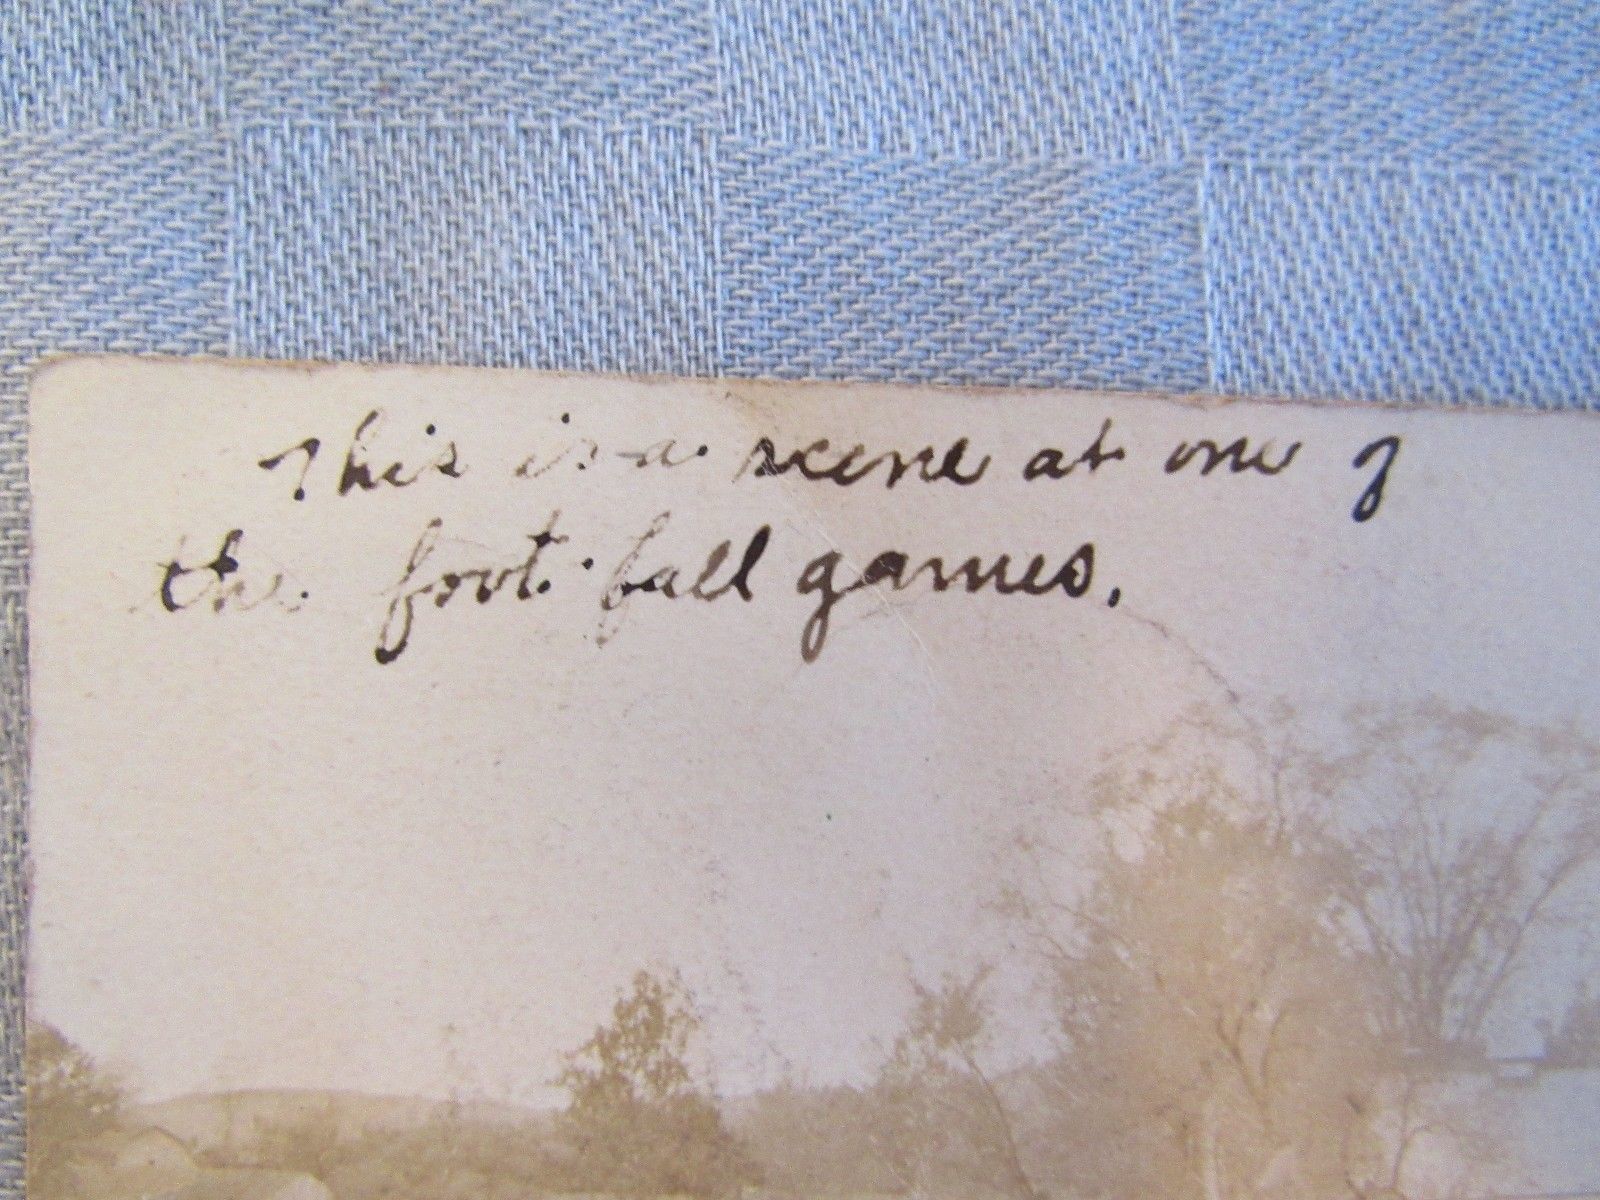 This is a scene at one of
the foot ball games.